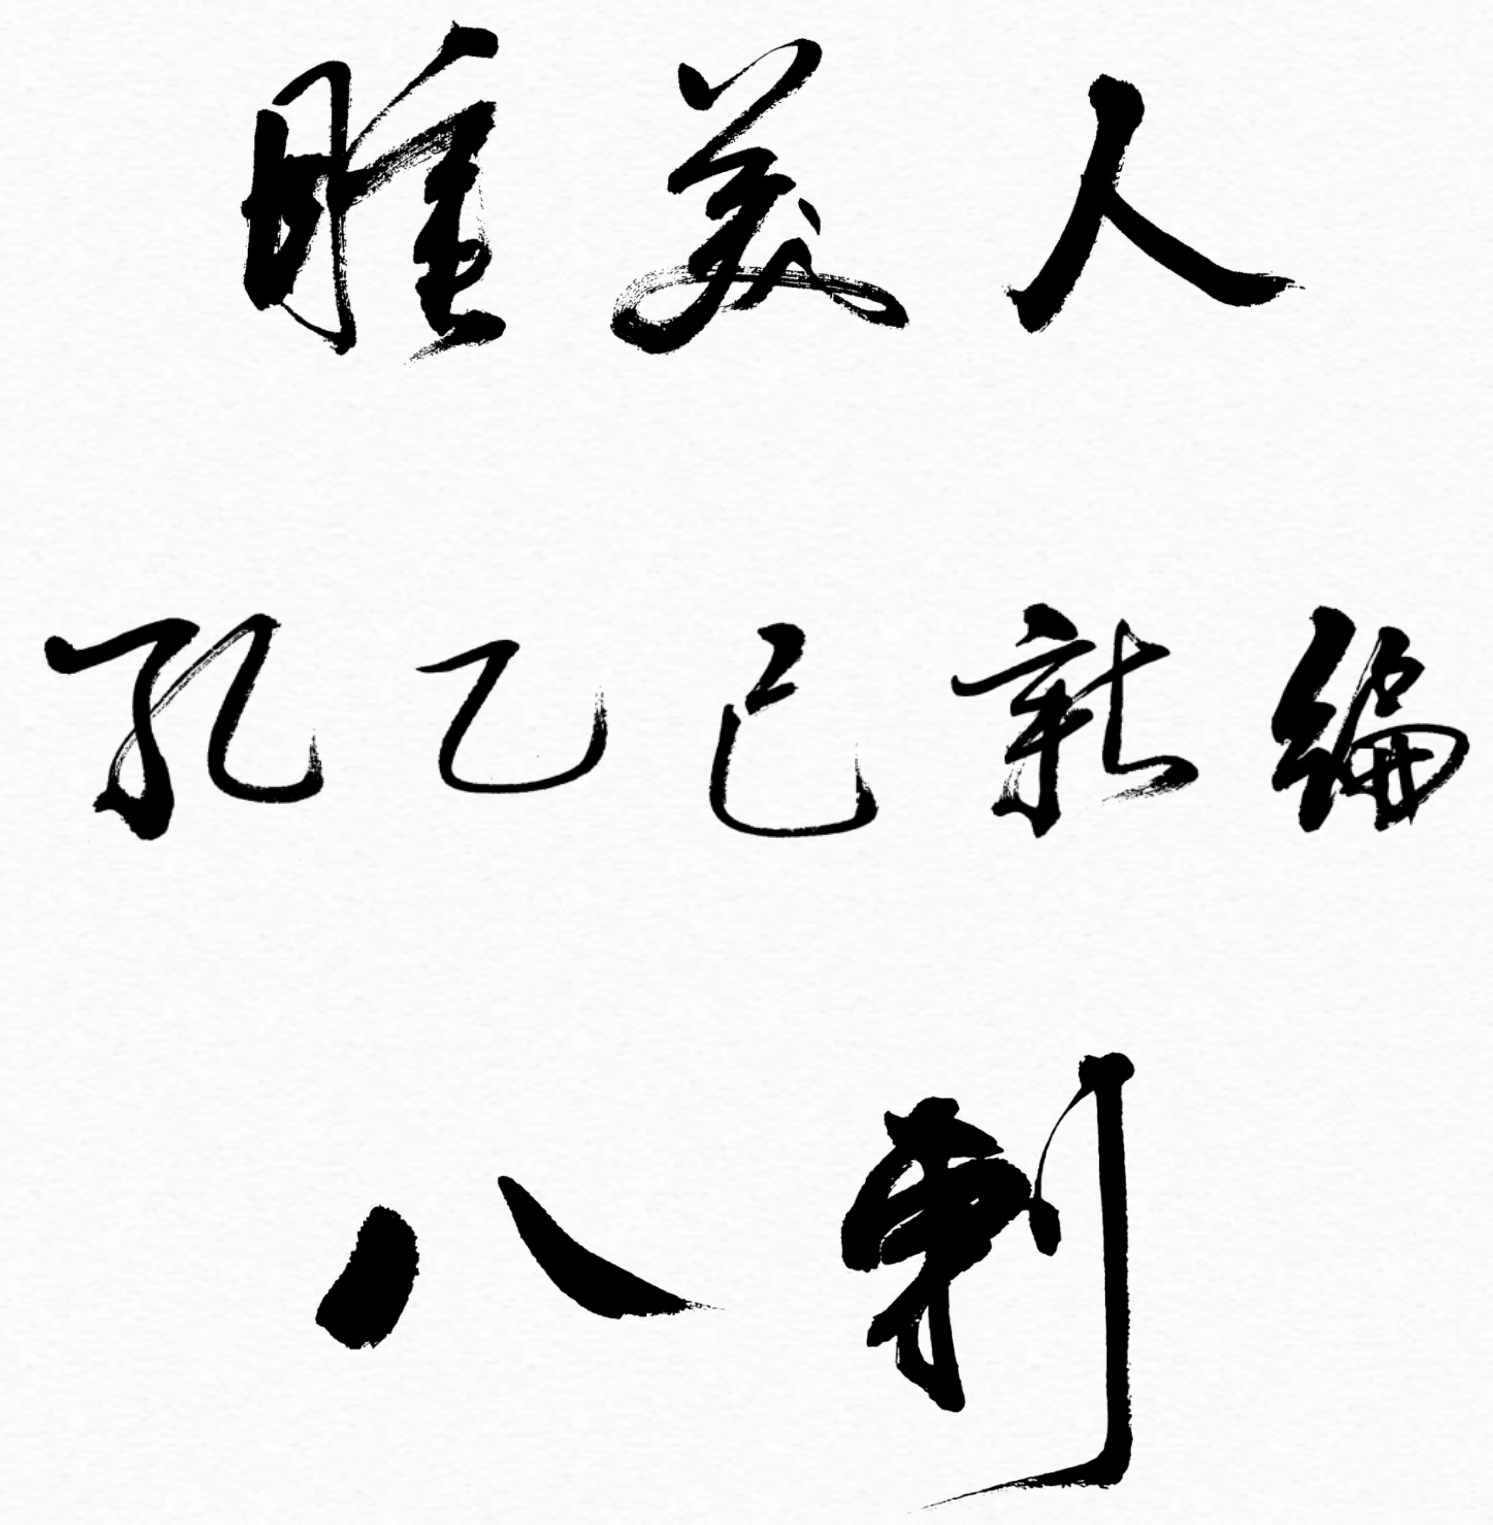 睡美人
孔乙己新编
八刺